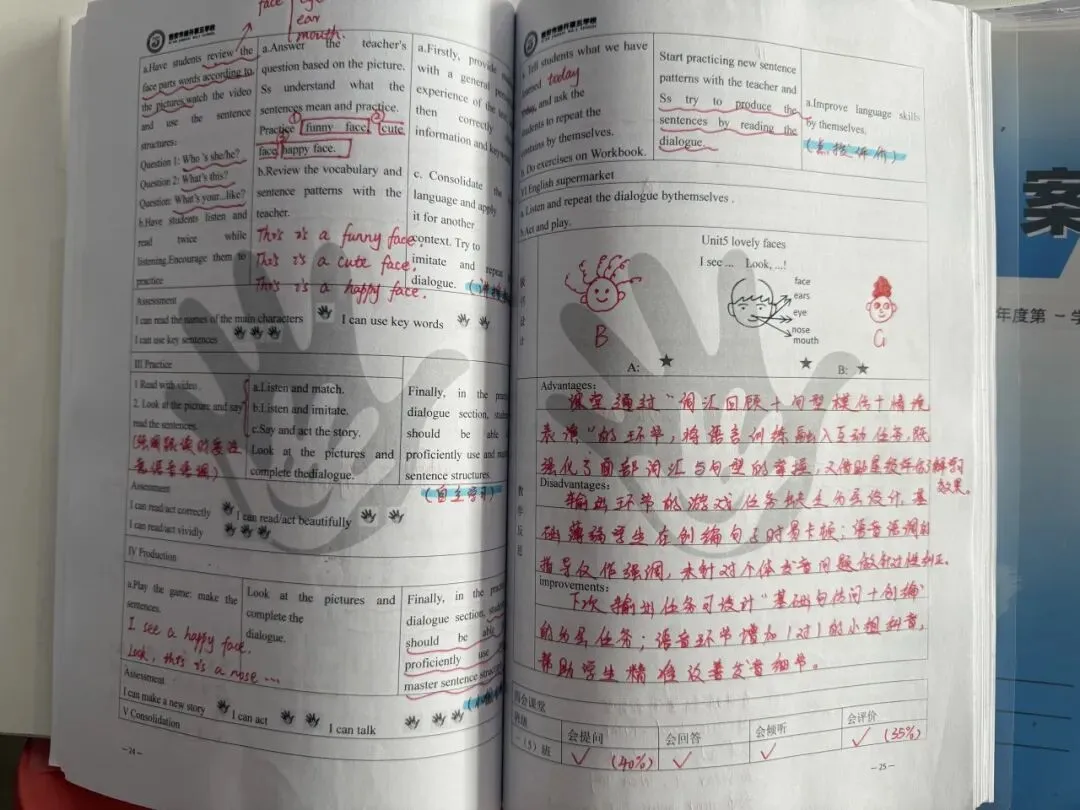 face
eye
ear
mouth.
a.Have students review the
face parts words according to
the pictures,watch the video
and use the sentence
structures:
Question 1: Who 's she/he?
Question 2: What's this?
Question: What's your...like?
b.Have students listen and
read twice while
listening.Encourage them to
practice
a.Answer the teacher's
question based on the picture.
Ss understand what the
sentences mean and practice.
Practice ① funny face, ② cute
face, ③ happy face.
b.Review the vocabulary and
sentence patterns with the
teacher.
This is a funny face.
This is a cute face.
This is a happy face.
a.Firstly, provide
with a general
experience of the
then correctly
information and
c. Consolidate the
language and apply
it for another
context. Try to
imitate and repeat
dialogue.
Assessment
I can read the names of the main characters
I can use key words
I can use key sentences
III Practice
1 Read with video .
2. Look at the picture and say
read the sentences.
a.Listen and match.
b.Listen and imitate.
c.Say and act the story.
Look at the pictures and
complete thedialogue.
Finally, in the
dialogue section,
should be able
proficiently use and
sentence structures.
(自主学习)
Assessment
I can read/act correctly
I can read/act beautifully
I can read/act vividly
IV Production
a.Play the game: make the
sentences.
I see a happy face.
Look, this is a nose ...
Look at the pictures and
complete the
dialogue.
Finally, in the
dialogue section,
should be able
proficiently use
master sentence
Assessment
I can make a new story
I can act
I can talk
V Consolidation
—24—
a. Tell students what we have
learned today
and ask the
students to repeat the
contains by themselves.
b. Do exercises on Workbook.
Start practicing new sentence
patterns with the teacher and
Ss try to produce the
sentences by reading the
dialogue.
a.Improve language skills
by themselves.
VI English supermarket
a. Listen and repeat the dialogue bythemselves .
b.Act and play.
板书设计
Unit5 lovely faces
I see ... Look, ...!
face
ears
eye
nose
mouth
B
G
A: ★
★ B: ★
教学反思
Advantages:
课堂通过“词汇回顾+句型模仿+情境
表演”的环节,将语言训练融入互动任务,既
强化了面部词汇与句型的掌握,又借助星级评价了解学习
效果。
Disadvantages:
输出环节的游戏任务缺乏分层设计,基
础薄弱学生在创编句子时易卡顿;语音语调的
指导仅作强调,未针对个体发音问题做针对性纠正。
improvements:
下次输出任务可设计“基础句仿问+创编”
的分层任务;语音环节增加1对1的小组纠音,
帮助学生精准改善发音细节。
四会课堂
班
会提问
会回答
会倾听
会评价
一(5)班
✓ (40%)
✓
✓
✓ (35%)
—25—
案
年度第一学